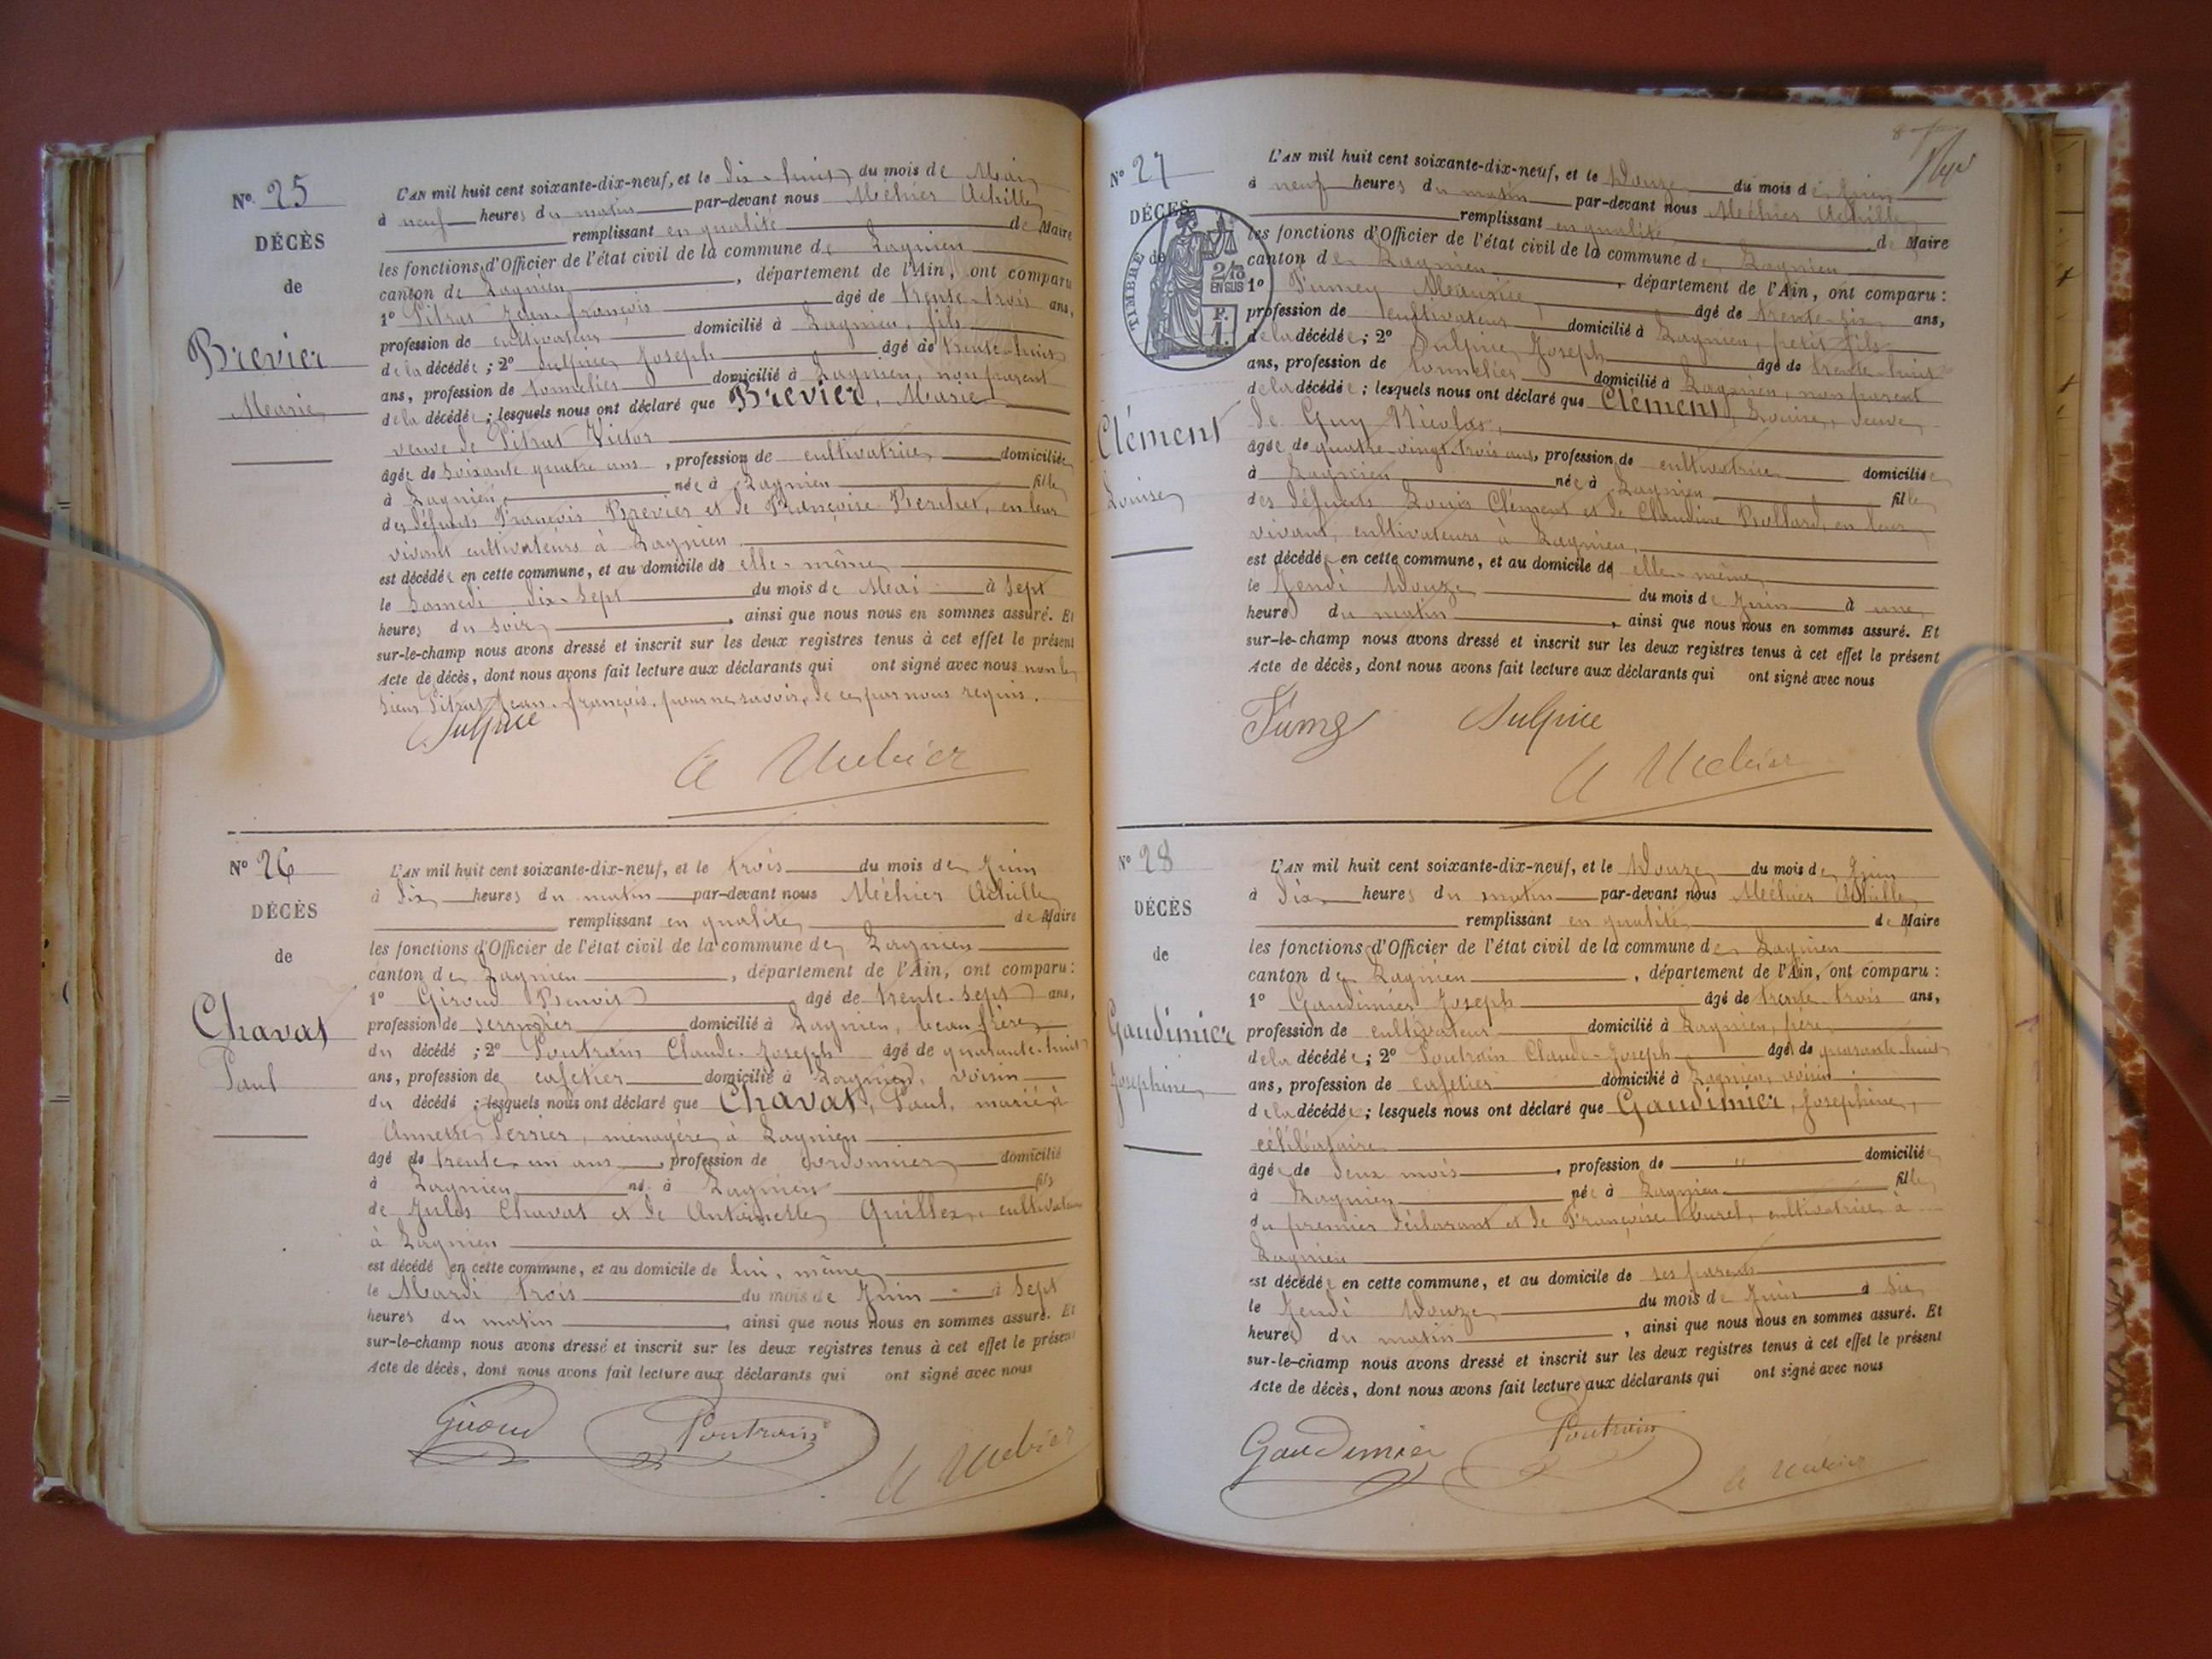 N° 25
DÉCÈS
de
Brevier
Marie
L'AN mil huit cent soixante-dix-neuf, et le dix-huit du mois de Mai
à neuf heures du matin par-devant nous Méhier Achille
remplissant en qualité de Maire
les fonctions d'Officier de l'état civil de la commune de Lagnieu
canton de Lagnieu, département de l'Ain, ont comparu
1° Pitrat Jean-françois âgé de trente-trois ans,
profession de cultivateur domicilié à Lagnieu, fils
de la décédée ; 2° Sulpice Joseph âgé de trente-huit
ans, profession de tonnelier domicilié à Lagnieu, non parent
de la décédée ; lesquels nous ont déclaré que Brevier, Marie
veuve de Pitrat Victor
âgée de soixante quatre ans, profession de cultivatrice domiciliée
à Lagnieu, née à Lagnieu fille
des défunts François Brevier et de Françoise Berthet, en leur
vivant cultivateurs à Lagnieu
est décédée en cette commune, et au domicile de elle-même
le Samedi dix-sept du mois de Mai à sept
heures du soir, ainsi que nous nous en sommes assuré. Et
sur-le-champ nous avons dressé et inscrit sur les deux registres tenus à cet effet le présent
Acte de décès, dont nous avons fait lecture aux déclarants qui ont signé avec nous non le
sieur Pitrat Jean-françois, pour ne savoir, de ce par nous requis.
Sulpice
A Méhier
N° 26
DÉCÈS
de
Chavat
Paul
L'AN mil huit cent soixante-dix-neuf, et le trois du mois de Juin
à dix heures du matin par-devant nous Méhier Achille
remplissant en qualité de Maire
les fonctions d'Officier de l'état civil de la commune de Lagnieu
canton de Lagnieu, département de l'Ain, ont comparu :
1° Giroud Benoit âgé de trente-sept ans,
profession de serrurier domicilié à Lagnieu, beau frère
du décédé ; 2° Poutrain Claude-Joseph âgé de quarante-huit
ans, profession de cafetier domicilié à Lagnieu, voisin
du décédé ; lesquels nous ont déclaré que Chavat, Paul, marié à
Annette Perrier, ménagère à Lagnieu
âgé de trente-un ans, profession de cordonnier domicilié
à Lagnieu né à Lagnieu fils
de Jules Chavat et de Antoinette Quillex, cultivateurs
à Lagnieu
est décédé en cette commune, et au domicile de lui-même
le Mardi trois du mois de Juin à sept
heures du matin, ainsi que nous nous en sommes assuré. Et
sur-le-champ nous avons dressé et inscrit sur les deux registres tenus à cet effet le présent
Acte de décès, dont nous avons fait lecture aux déclarants qui ont signé avec nous
Giroud Poutrain A Méhier
N° 27
DÉCÈS
de
TIMBRE
2/10
EN SUS
F.
1.
Clément
Louise
L'AN mil huit cent soixante-dix-neuf, et le Douze du mois de Juin
à neuf heures du matin par-devant nous Méhier Achille
remplissant en qualité de Maire
les fonctions d'Officier de l'état civil de la commune de Lagnieu
canton de Lagnieu, département de l'Ain, ont comparu :
1° Fumey Maurice âgé de trente-six ans,
profession de cultivateur domicilié à Lagnieu, petit-fils
de la décédée ; 2° Sulpice Joseph âgé de trente-huit
ans, profession de tonnelier domicilié à Lagnieu, non parent
de la décédée ; lesquels nous ont déclaré que Clément, Louise, veuve
de Guy Nicolas,
âgée de quatre-vingt-trois ans, profession de cultivatrice domiciliée
à Lagnieu née à Lagnieu fille
des défunts Louis Clément et de Claudine Rollard, en leur
vivant, cultivateurs à Lagnieu,
est décédée en cette commune, et au domicile de elle-même
le Jeudi Douze du mois de Juin à une
heure du matin, ainsi que nous nous en sommes assuré. Et
sur-le-champ nous avons dressé et inscrit sur les deux registres tenus à cet effet le présent
Acte de décès, dont nous avons fait lecture aux déclarants qui ont signé avec nous
Sulpice
A Méhier
N° 28
DÉCÈS
de
Gaudimier
Josephine
L'AN mil huit cent soixante-dix-neuf, et le Douze du mois de Juin
à dix heures du matin par-devant nous Méhier Achille
remplissant en qualité de Maire
les fonctions d'Officier de l'état civil de la commune de Lagnieu
canton de Lagnieu, département de l'Ain, ont comparu :
1° Gaudimier Joseph âgé de trente-trois ans,
profession de cultivateur domicilié à Lagnieu, père
de la décédée ; 2° Poutrain Claude-Joseph âgé de quarante-huit
ans, profession de cafetier domicilié à Lagnieu, voisin
de la décédée ; lesquels nous ont déclaré que Gaudimier, Josephine,
célibataire
âgée de deux mois, profession de " domiciliée
à Lagnieu née à Lagnieu fille
du premier déclarant et de Françoise Curet, cultivatrice à
Lagnieu
est décédée en cette commune, et au domicile de ses parents
le Jeudi Douze du mois de Juin à six
heures du matin, ainsi que nous nous en sommes assuré. Et
sur-le-champ nous avons dressé et inscrit sur les deux registres tenus à cet effet le présent
Acte de décès, dont nous avons fait lecture aux déclarants qui ont signé avec nous
Gaudimier Poutrain A Méhier